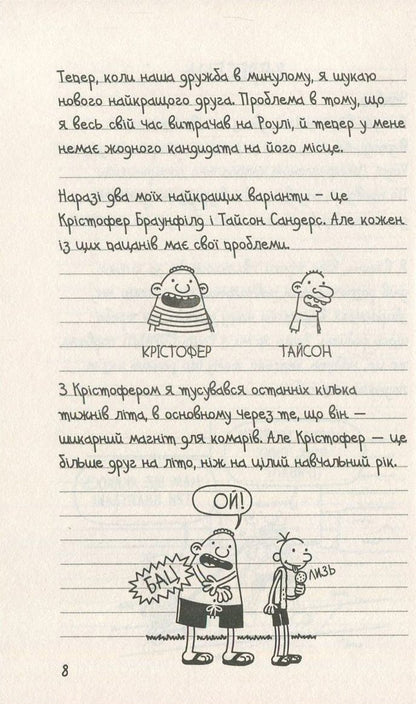 Тепер, коли наша дружба в минулому, я шукаю
нового найкращого друга. Проблема в тому, що
я весь свій час витрачав на Роулі, й тепер у мене
немає жодного кандидата на його місце.
Наразі два моїх найкращих варіанти – це
Крістофер Браунфілд і Тайсон Сандерс. Але кожен
із цих пацанів має свої проблеми.
КРІСТОФЕР
ТАЙСОН
З Крістофером я тусувався останніх кілька
тижнів літа, в основному через те, що він —
шикарний магніт для комарів. Але Крістофер — це
більше друг на літо, ніж на цілий навчальний рік.
ОЙ!
БАЦ
ЛИЗЬ
8